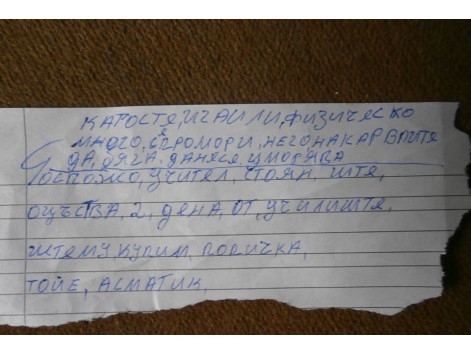 КАТОСТЕ, ИГАИЛИ, ФИЗИЧЕСКО
МНОГО, СЕ ПРОМОРИ, НЕГОНАКАРВАИТЕ
ДА, БЯГА, ДАНЕСЕ, ИЗМОРЯВА
ГОСПОЖО, УЧИТЕЛ, СТОЯН, ШТЕ,
ОЦЪСТВА, 2, ДЕНА, ОТ, УЧИЛИШТЕ,
ШТЕМУ, КУПИМ, ПОВИЧКА,
ТОЙЕ, АСМАТИК,